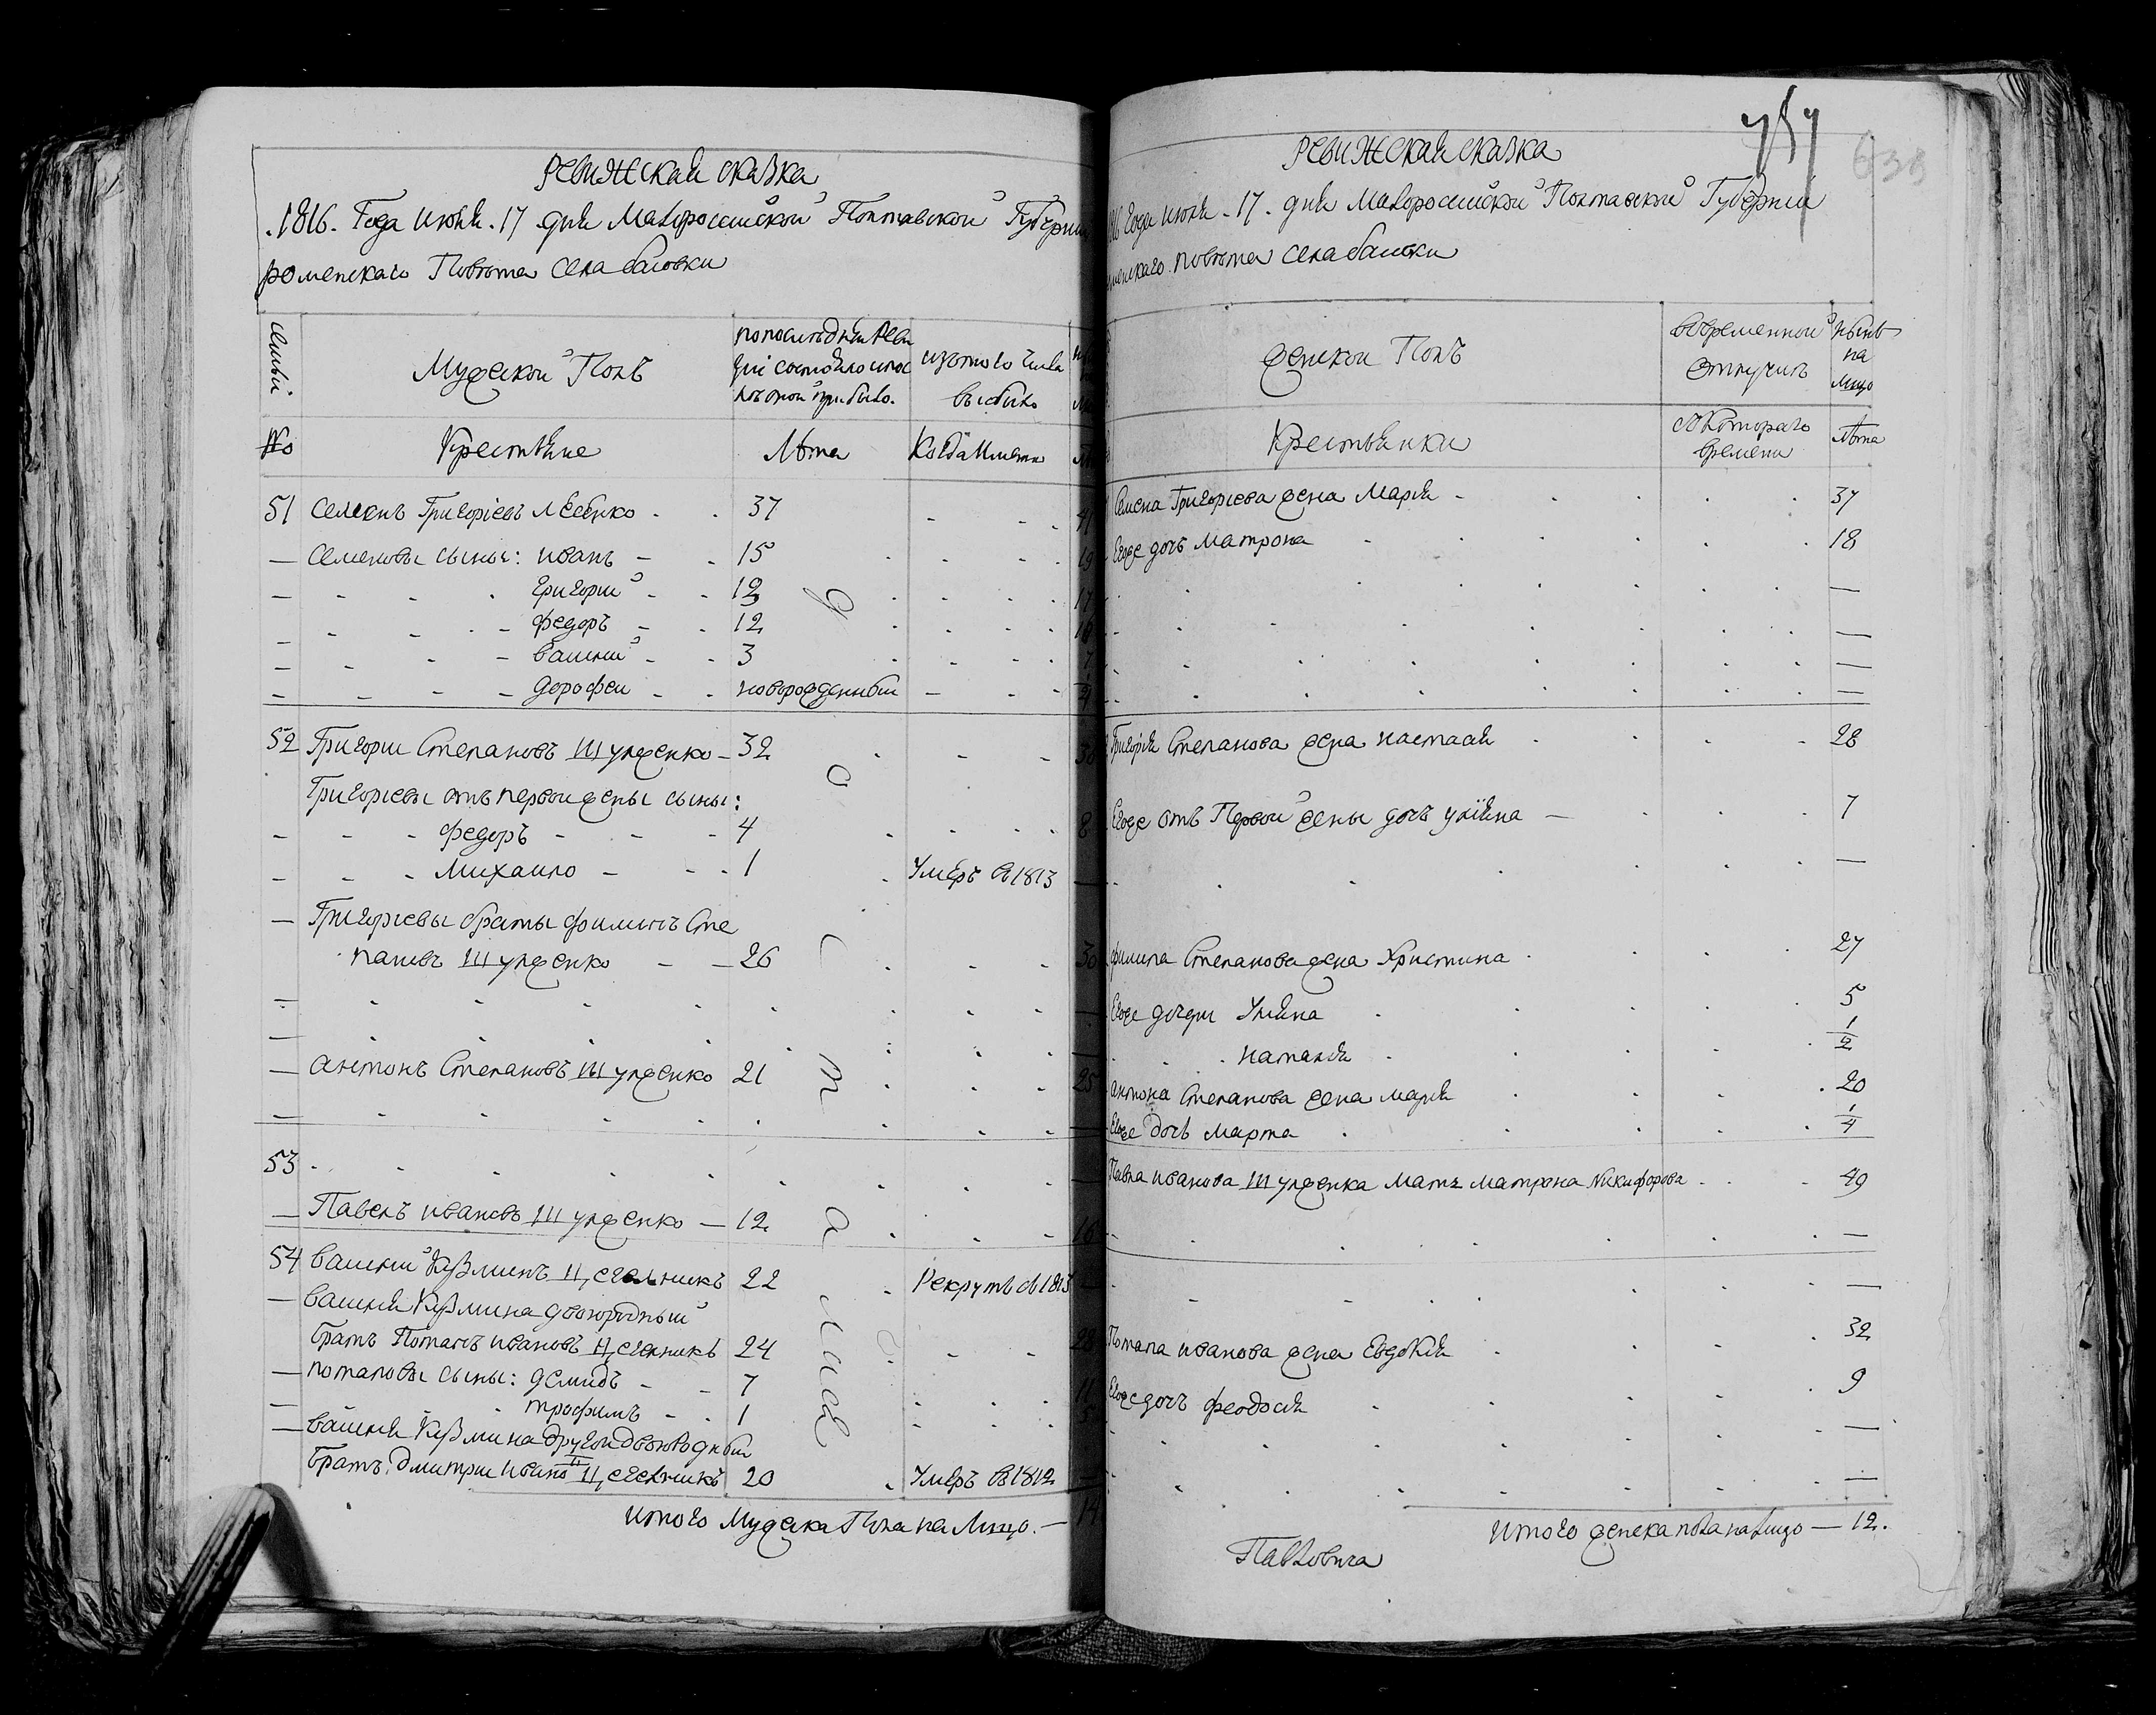 Ревижская сказка
.1816. Года июня .17 дня Малороссийской Полтавской Губернии
роменскаго Повѣта села басовки
семьи.
Мужеской Полъ
по последней Реви
зіи состояло и пос
лѣ оной прибыло.
изъ того числа
выбыло
№
Крестьяне
Лѣта
Когда Имянно
51 Семенъ Григоріевъ 37 41
— Семеновы сыны: иванъ — 15 19
григорий 13 17
федоръ 12 16
василий 3 7
дорофеи новорожденный 
52 Григории Степановъ Шулженко — 32 36
Григоріевы отъ первои жены сыны:
федоръ 4 8
Михаило — 1 Умеръ в 1813 —
— Григоріевы браты филипъ Сте
пановъ Шулженко — 26 30
— антонъ Степановъ Шулженко 21 25
53
— Павелъ ивановъ Шулженко — 12 16
54 василий Кузминъ 22 Рекрутъ в 1813 —
— василия Кузмина двоюродный
братъ Потапъ ивановъ 24 28
— потаповы сыны: демидъ 7 11
трофимъ 1 5
— василия Кузмина другои двоюродный
братъ дмитрии ивановъ 20 Умеръ в 1812 —
итого Мужеска Пола на Лицо. — 14
757
638
Ревижская сказка
1816 Года июня .17. дня Малороссийской Полтавской Губерніи
роменскаго повѣта села басовки
женской Полъ
во временной
отлучкѣ
нынѣ
на
лицо
Крестьянки
съ Котораго
времени
лѣта
Семена Григоріева жена Марія 37
Егоже дочь матрона 18
Григорія Степанова жена настасія 28
Егоже отъ Первой жены дочь уліяна — 7
филипа Степанова жена Христина 27
Егоже дочери Уліяна 5
наталія 1/2
антона Степанова жена марія 20
Егоже дочь марта 1/4
Павла иванова Шулженка мать матрона Никифорова 49
Потапа иванова жена Евдокія 32
Егоже дочь феодосія 9
итого женска пола на лицо — 12.
Павловича